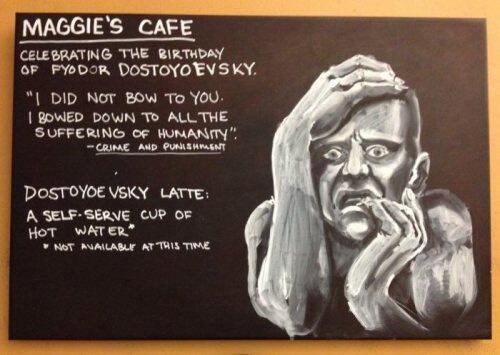 MAGGIE'S CAFE
CELEBRATING THE BIRTHDAY
OF FYODOR DOSTOYOEVSKY.
"I DID NOT BOW TO YOU.
I BOWED DOWN TO ALL THE
SUFFERING OF HUMANITY".
-CRIME AND PUNISHMENT
DOSTOYOEVSKY LATTE:
A SELF-SERVE CUP OF
HOT WATER*
* NOT AVAILABLE AT THIS TIME